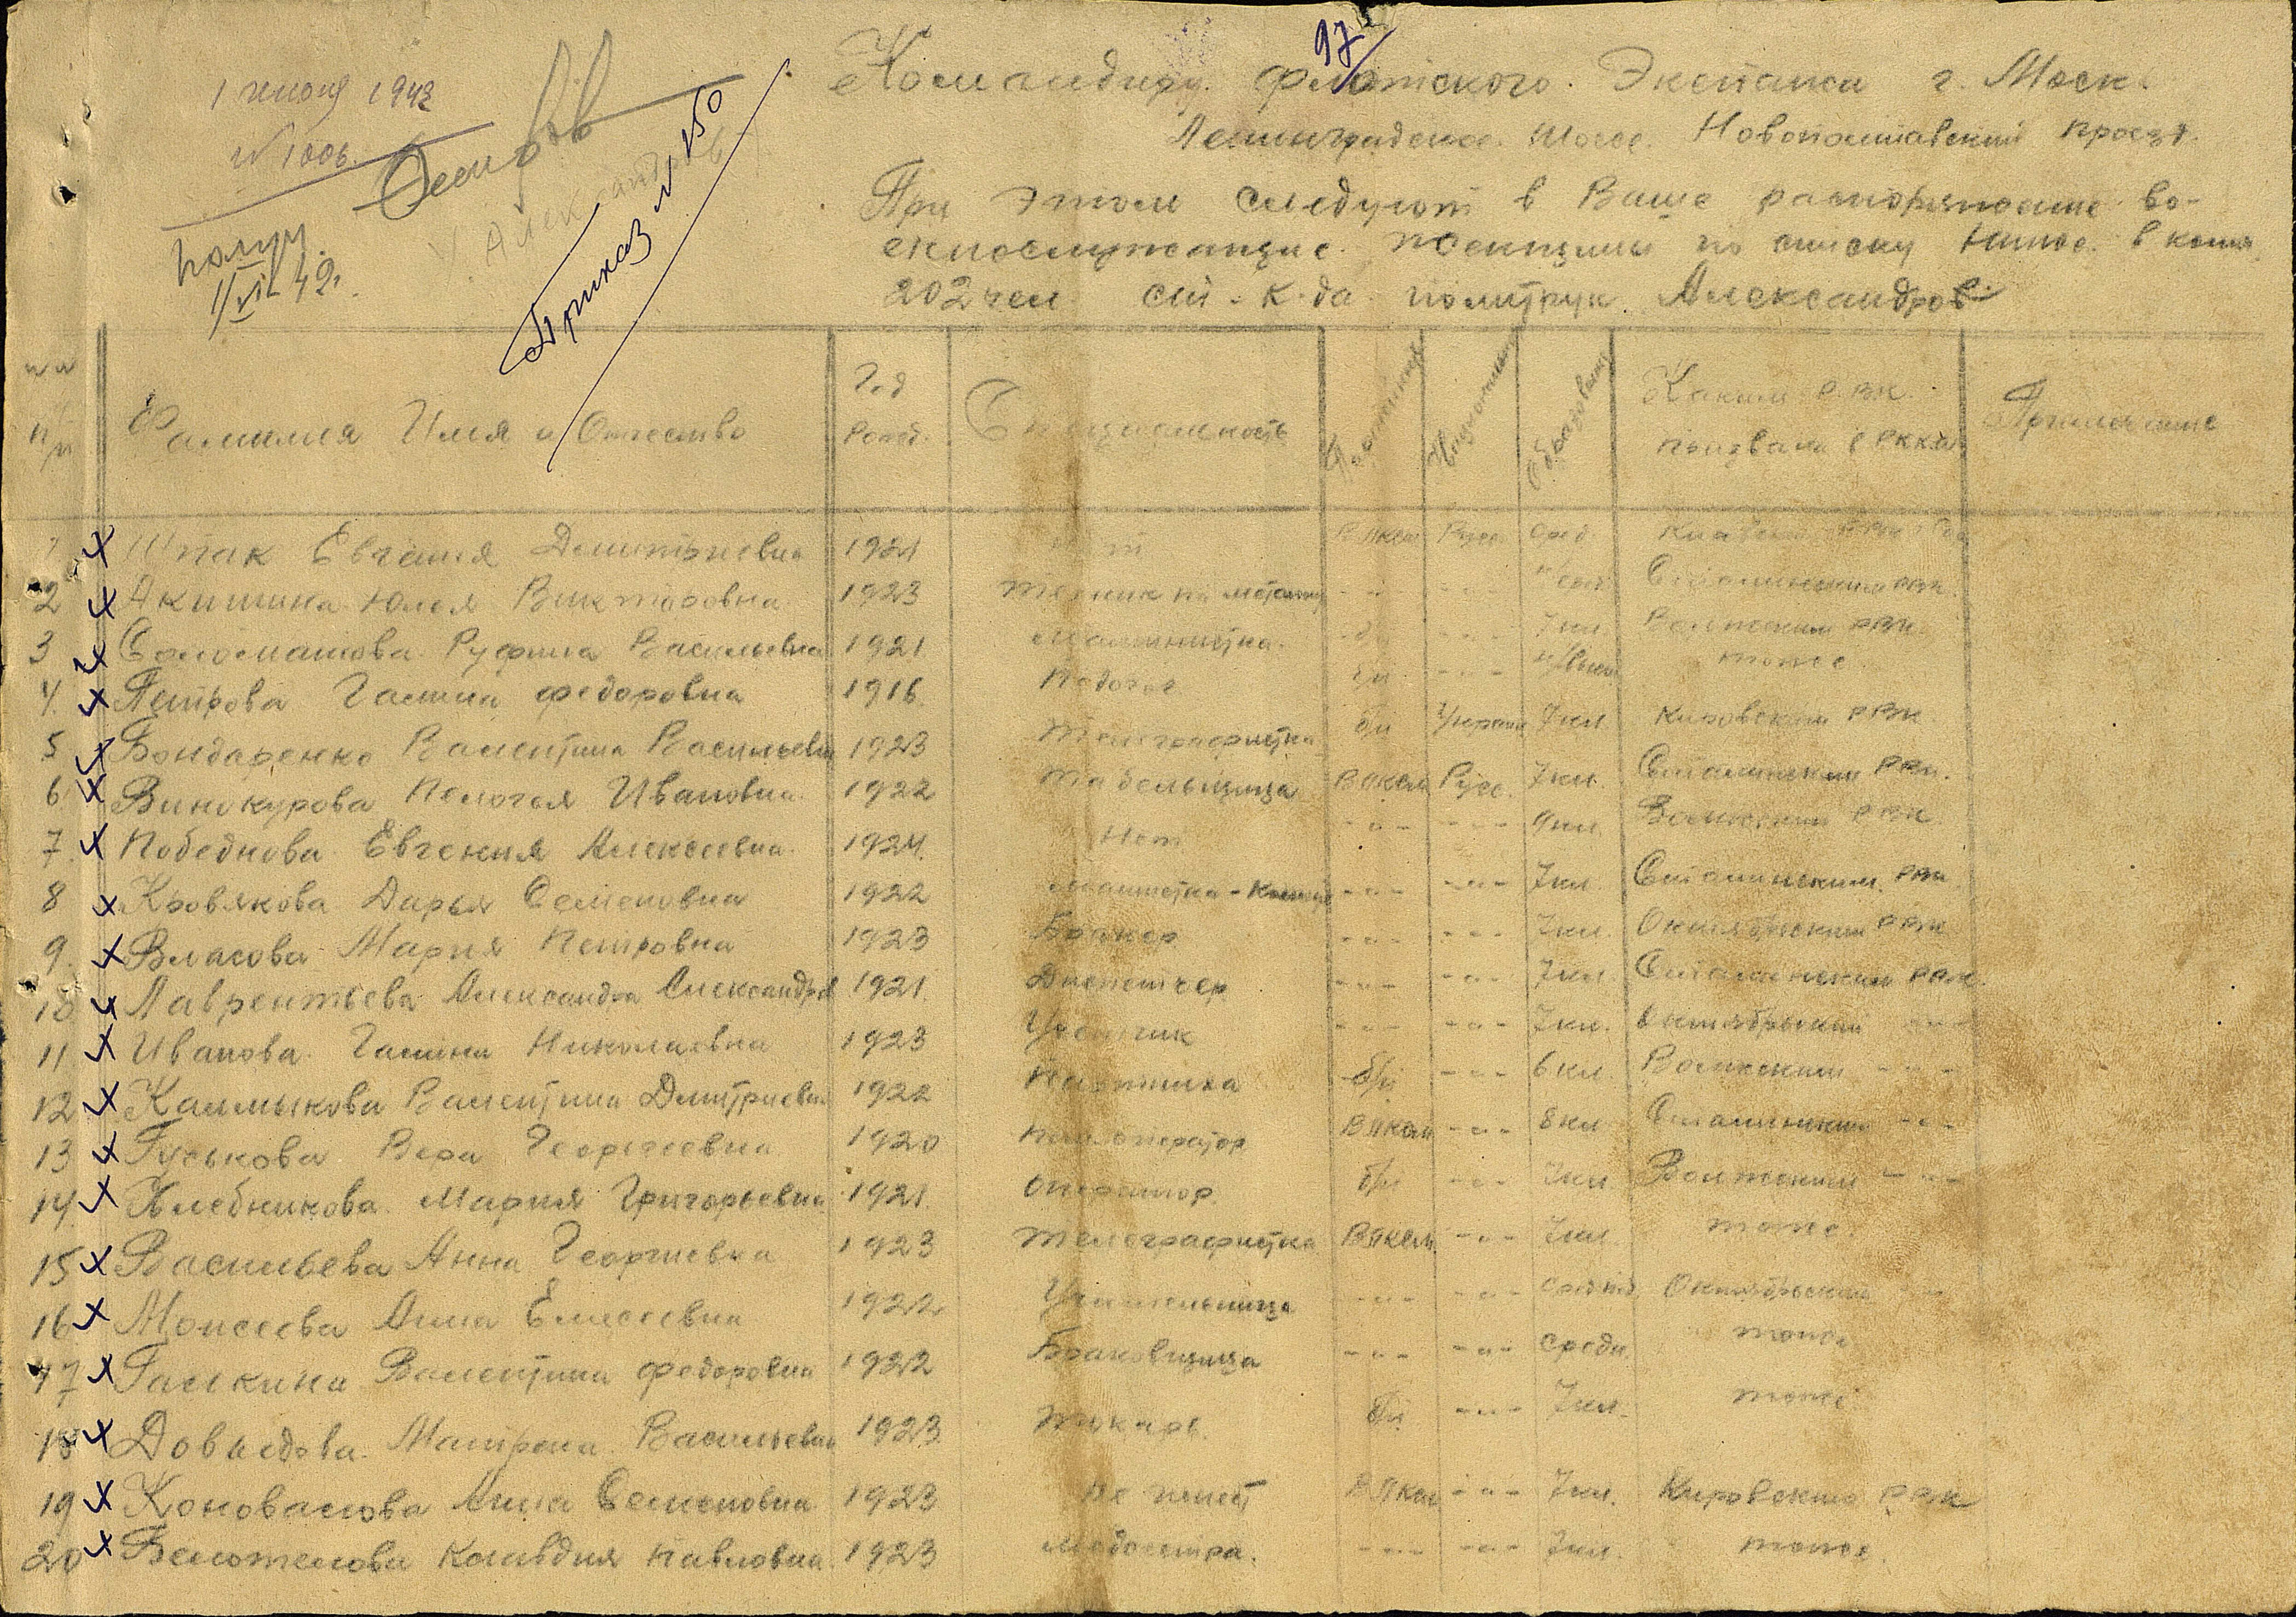 97
1 июля 1942
N 1006.
Получ.
1/VII 42г.
Александров
Приказ N 150
Командиру Флотского Экепажа г. Моск.
Ленинградское Шоссе Новопоштавский проезд.
При этом следуют в Ваше распоряжение во-
енослужащие женщины по списку ниже в колич.
202 чел. ст. к-да политрук Александров
NN п/п Фамилия Имя и Отчество Год рожд. Специальность Партийность Национальн. Образован. Каким Р.В.К. призвана в РККА Примечание
1 Шпак Евгения Дмитриевна 1921 Нет ВЛКСМ Русс. сред.
2 Акишина Юлея Викторовна 1923 Техник по металлу -"- -"- н/сред. Сталинским РВК.
3 Соломатова Руфина Васильевна 1921 Машинистка. б/п -"- 7 кл. Волжским РВК
4. Петрова Галина Федоровна 1916 Педогог б/п -"- н/высш. тоже.
5 Бондаренко Валентина Васильевн 1923 Телеграфистка б/п Украин 7 кл Кировским РВК
6 Винокурова Пелогея Ивановна 1922 Табельщица ВЛКСМ Русс. 7 кл. Сталинским РВК.
7. Победнова Евгения Алексеевна 1924. Нет -"- -"- 9 кл. Волжским РВК
8 Кровякова Дарья Семеновна 1922 -"- -"- 7 кл. Сталинским. РВК
9. Власова Мария Петровна 1923 Бракер -"- -"- 7 кл. Октябрьским РВК
10 Лаврентьева Александра Александров 1921. Диспетчер -"- -"- 7 кл. Сталинским РВК.
11. Иванова Галина Николаевна 1923 -"- -"- 7 кл. Октябрьский -"-
12 Калмыкова Валентина Дмитриевна 1922 б/п -"- 6 кл. Волжским -"-
13 Гуськова Вера Георгиевна 1920 ВЛКСМ -"- 8 кл Сталинским -"-
14. Хлебникова Мария Григорьевна 1921. Оператор б/п -"- 7 кл. Волжским -"-
15 Васильева Анна Георгиевна 1923 Телеграфистка ВЛКСМ. -"- 7 кл. тоже.
16 Моисеева Анна Елисеевна 1922 Учительница -"- -"- Октябрьским -"-
17 Галкина Валентина Федоровна 1922 Браковщица -"- -"- средн. тоже
18 Довыдова Матрена Васильевн 1923 Токарь. б/п -"- 7 кл. тоже
19 Коновалова Анна Семеновна 1923 Не имеет ВЛКСМ -"- 7 кл. Кировским РВК
20 Беложелова Клавдия Павловна 1923 Медсестра. -"- -"- 7 кл. тоже.